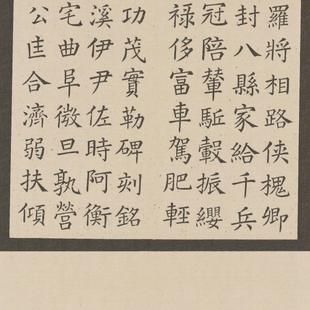 羅將相路俠槐卿
封八縣家給千兵
冠陪輦駈轂振纓
祿侈富車駕肥輕
功茂實勒碑刻銘
溪伊尹佐時阿衡
宅曲阜微旦孰營
公匡合濟弱扶傾